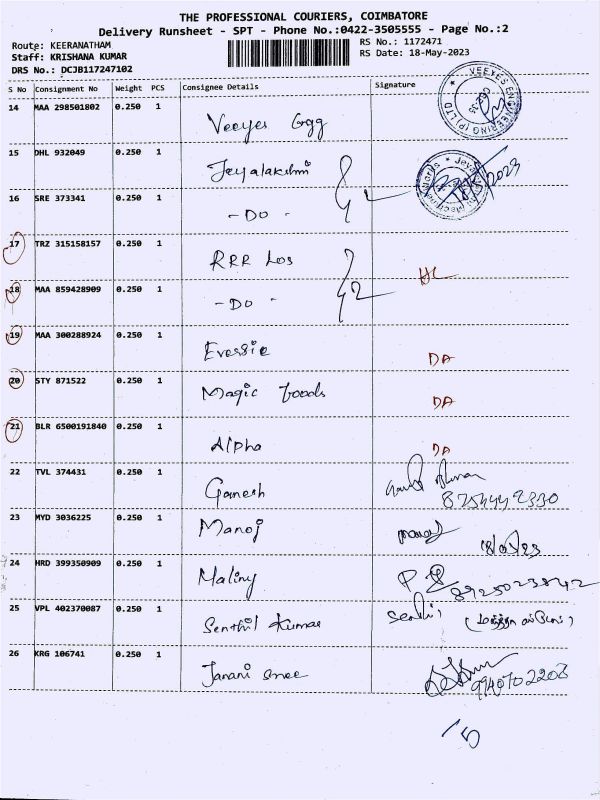 THE PROFESSIONAL COURIERS, COIMBATORE
Delivery Runsheet - SPT - Phone No.:0422-3505555 - Page No.:2
Route: KEERANATHAM
RS No.: 1172471
Staff: KRISHANA KUMAR
RS Date: 18-May-2023
DRS No.: DCJB117247102
S No Consignment No Weight PCS Consignee Details Signature
VEEYES ENGINEERING (P) LTD
14 MAA 298501802 0.250 1
Veeyes Egg
15 DHL 932049 0.250 1
Jeyalakshmi
2023
16 SRE 373341 0.250 1
- DO - 2
17 TRZ 315158157 0.250 1
RRR Los
18 MAA 859428909 0.250 1
- DO - 2
19 MAA 300288924 0.250 1
Evassie DA
20 STY 871522 0.250 1
Magic foods DA
21 BLR 6500191840 0.250 1
Alpha DA
22 TVL 374431 0.250 1
Ganesh
23 MYD 3036225 0.250 1
Manoj manoj
18/05/23
24 HRD 399350909 0.250 1
Maliny
25 VPL 402370087 0.250 1
Senthil Kumar
26 KRG 106741 0.250 1
Janani Sree 9940702203
15